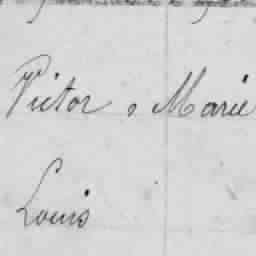 Victor, Marie
Louis